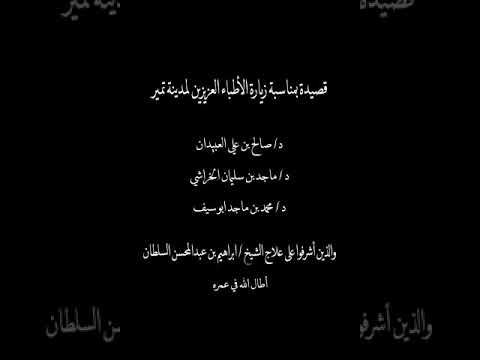 قصيدة بمناسبة زيارة الأطباء العزيزين لمدينة تمير
د/ صالح بن علي العبيدان
د / ماجد بن سليمان الخراشي
د / محمد بن ماجد ابوسيف
والذين أشرفوا على علاج الشيخ / ابراهيم بن عبدالمحسن السلطان
أطال الله في عمره